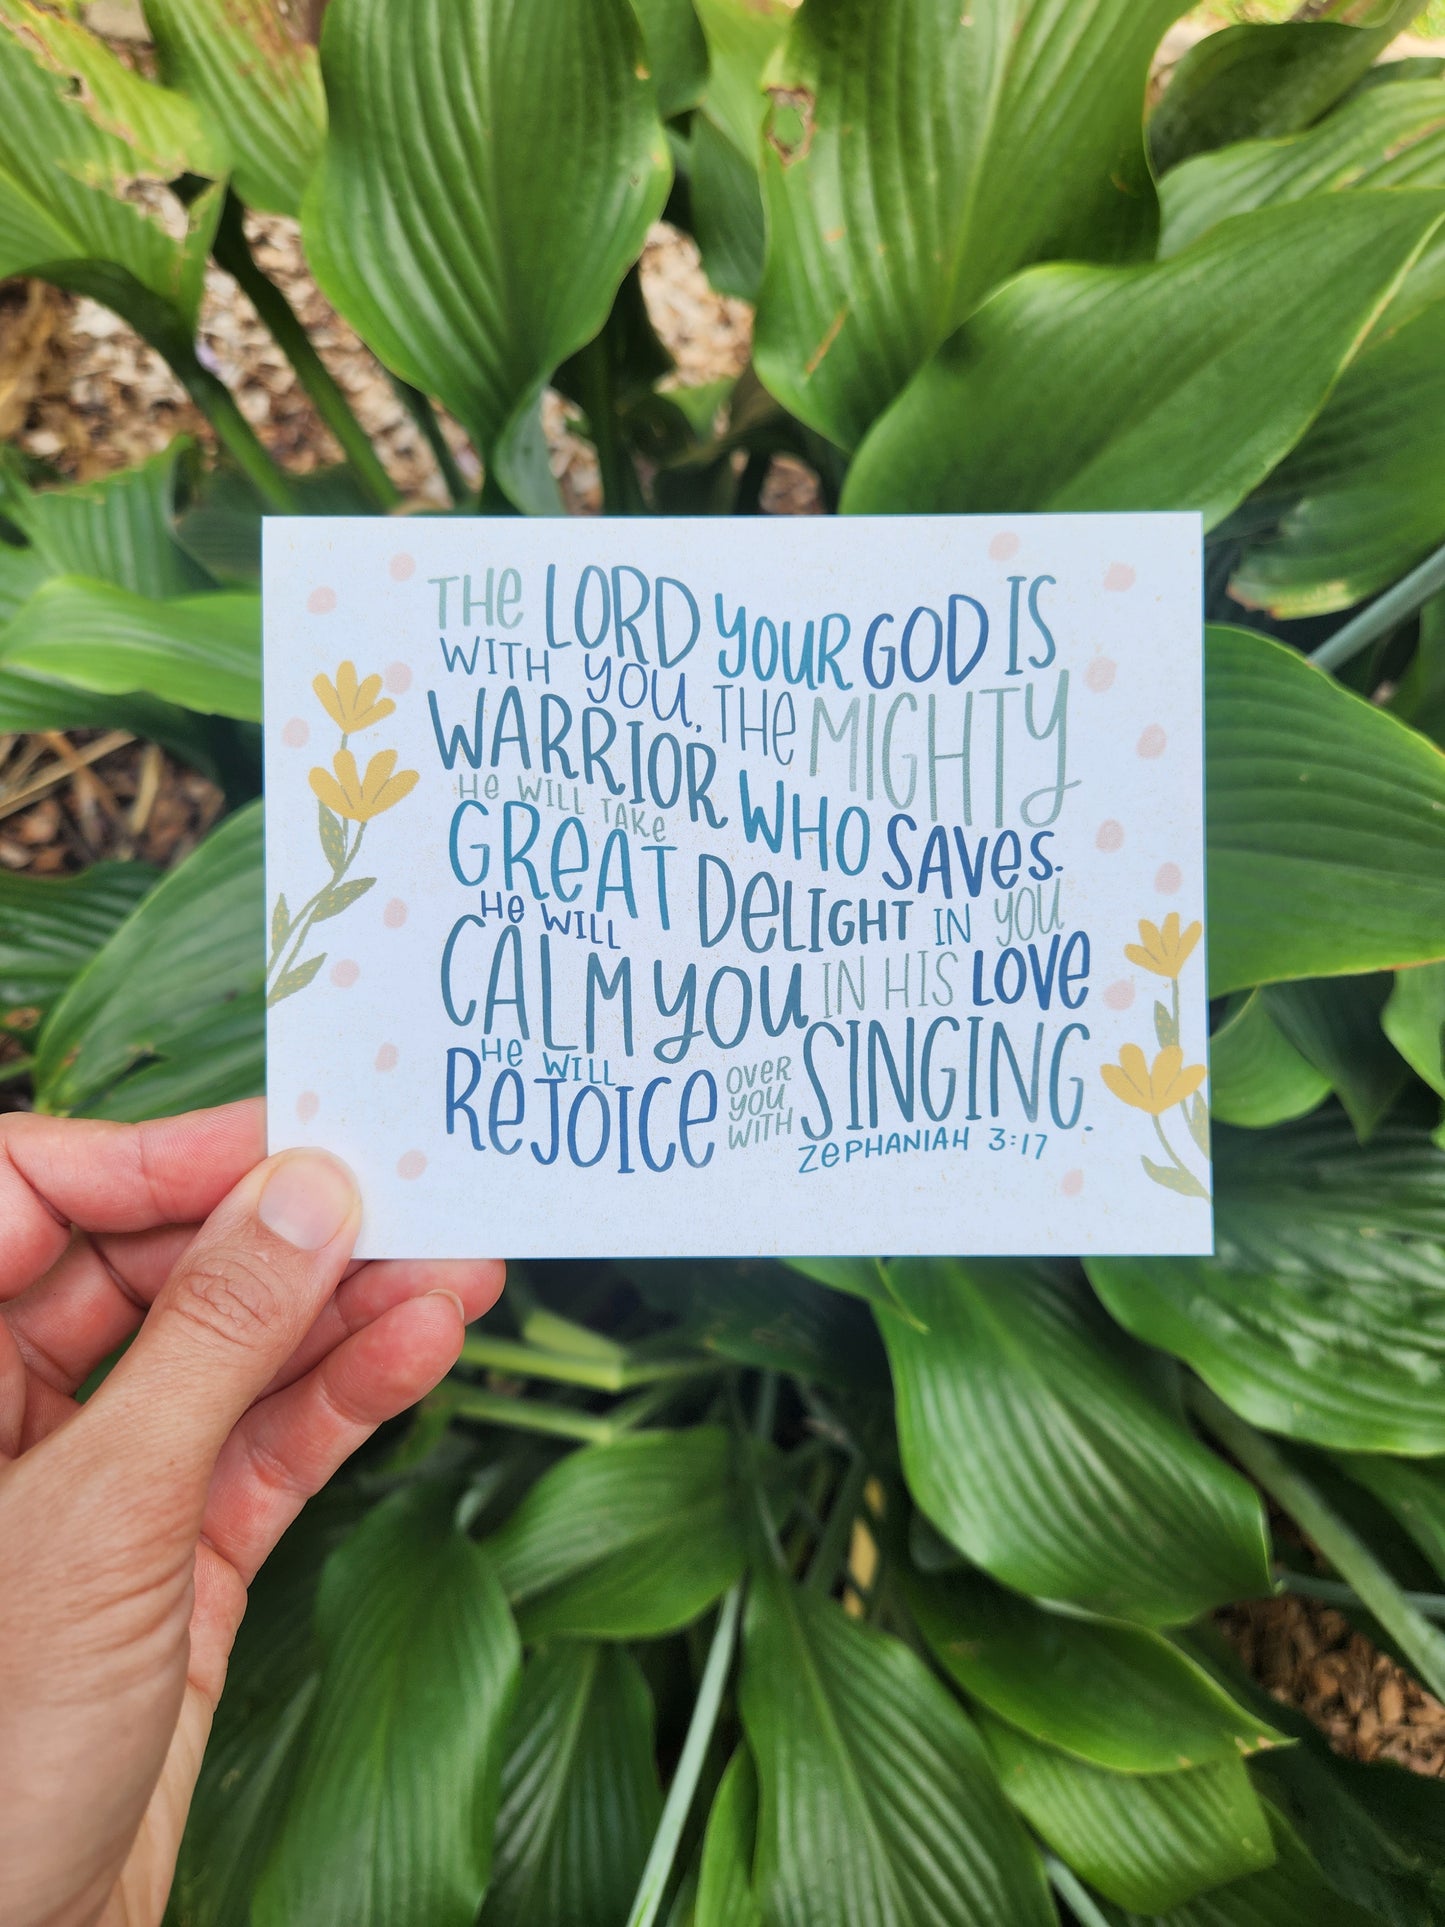 THE LORD YOUR GOD IS
WITH YOU, THE MIGHTY
WARRIOR WHO SAVES.
HE WILL TAKE
GREAT DELIGHT IN YOU
HE WILL
CALM YOU IN HIS LOVE
HE WILL
REJOICE OVER YOU WITH SINGING.
ZEPHANIAH 3:17